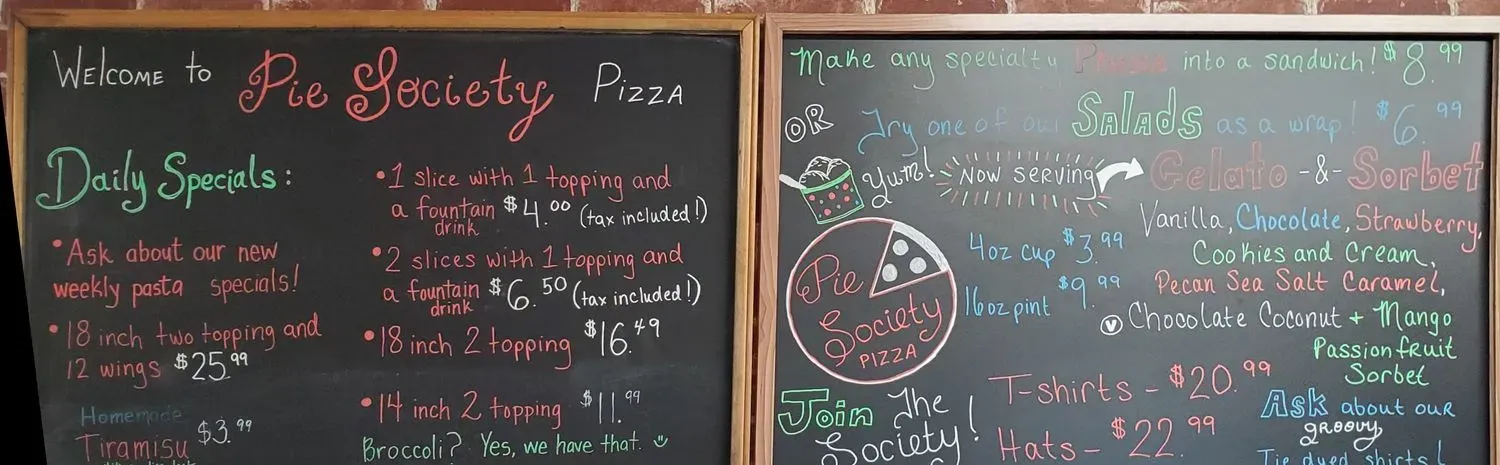 Welcome to Pie Society Pizza
Daily Specials:
• Ask about our new
weekly pasta specials!
• 18 inch two topping and
12 wings $25.99
Homemade
Tiramisu $3.99
• 1 slice with 1 topping and
a fountain drink $4.00 (tax included!)
• 2 slices with 1 topping and
a fountain drink $6.50 (tax included!)
• 18 inch 2 topping $16.49
• 14 inch 2 topping $11.99
Broccoli? Yes, we have that.
Make any specialty into a sandwich! $8.99
OR Try one of our Salads as a wrap! $6.99
Yum! Now serving Gelato -&- Sorbet
4oz cup $3.99
16oz pint $9.99
Vanilla, Chocolate, Strawberry,
Cookies and Cream,
Pecan Sea Salt Caramel,
V Chocolate Coconut + Mango
Passionfruit
Sorbet
Pie
Society
PIZZA
Join The
Society!
T-shirts - $20.99
Hats - $22.99
Ask about our
groovy
Tie dyed shirts!